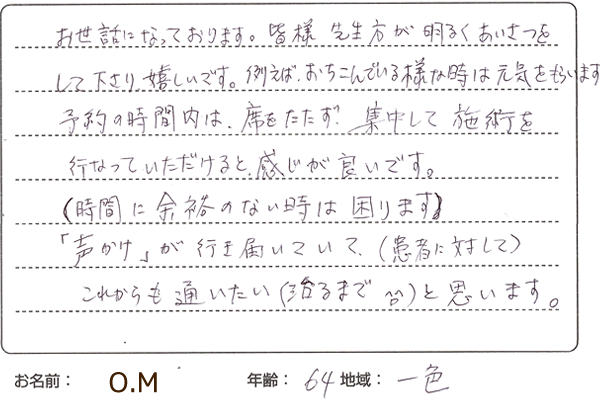 お世話になっております。皆様 先生方が明るくあいさつを
して下さり、嬉しいです。例えば、おちこんでいる様な時は元気をもらいます
予約の時間内は、席をたたず、集中して施術を
行なっていただけると、感じが良いです。
(時間に余裕のない時は困ります)
「声かけ」が行き届いていて、(患者に対して)
これからも通いたい(治るまで 笑)と思います。
お名前: O.M 年齢: 64 地域: 一色